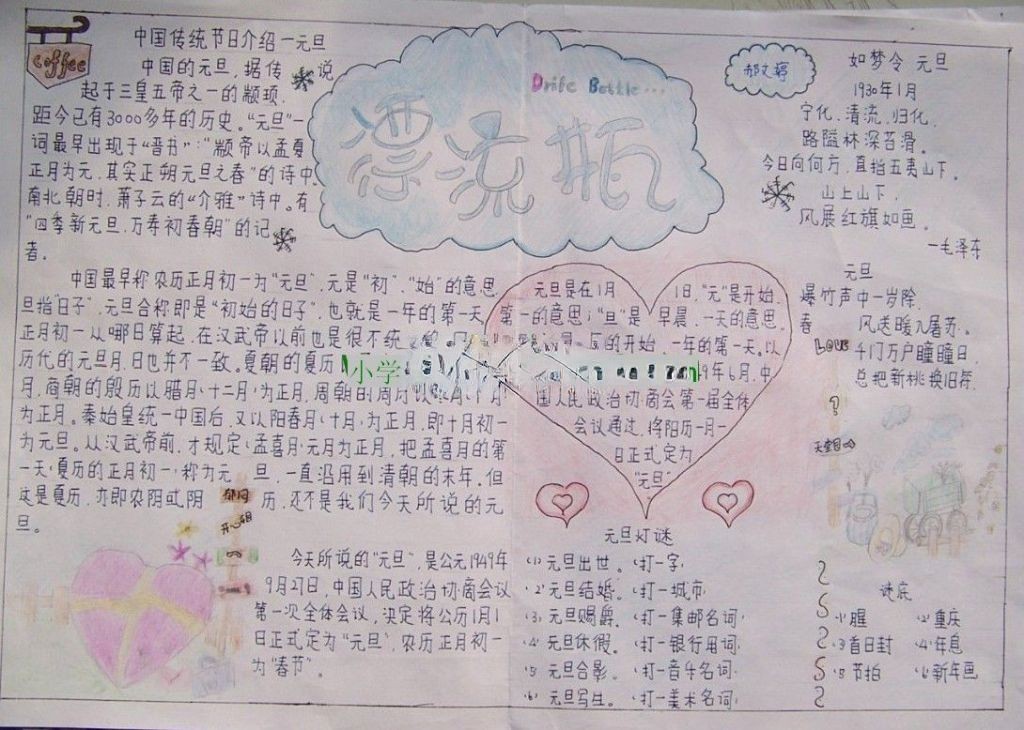 coffee
中国传统节日介绍一元旦
中国的元旦,据传说
起于三皇五帝之一的颛顼,
距今已有3000多年的历史。“元旦”一
词最早出现于“晋书”:“颛帝以孟夏
正月为元,其实正朔元旦之春”的诗中。
南北朝时,萧子云的“介雅”诗中。有
“四季新元旦,万寿初春朝”的记
者。
中国最早称农历正月初一为“元旦”,元是“初”、“始”的意思,
旦指“日子”,元旦合称即是“初始的日子”,也就是一年的第一天。
正月初一从哪日算起,在汉武帝以前也是很不统
历代的元旦月、日也并不一致。夏朝的夏历
月,商朝的殷历以腊月(十二月)为正月,周朝的周历以
为正月。秦始皇统一中国后,又以阳春月(十月)为正月,即十月初一
为元旦。从汉武帝前,才规定(孟喜月)元月为正月,把孟喜月的第
一天(夏历的正月初一)称为元旦,一直沿用到清朝的末年。但
这是夏历,亦即农阴或阴历,还不是我们今天所说的元
旦。
开心组
今天所说的“元旦”,是公元1949年
9月27日,中国人民政治协商会议
第一次全体会议,决定将公历1月1
日正式定为“元旦”,农历正月初一
为“春节”。
Drife Bottle...
漂流瓶
元旦是在1月1日,“元”是开始,
第一的意思;“旦”是早晨,一天的意思。
的开始,一年的第一天。以
49年6月,中
国人民政治协商会第一届全体
会议通过,将阳历一月一
日正式定为
“元旦”
小学
元旦灯谜
(1)元旦出世。(打一字)
(2)元旦结婚。(打一城市)
(3)元旦赐爵。(打一集邮名词)
(4)元旦休假。(打一银行用词)
(5)元旦合影。(打一音乐名词)
(6)元旦写生。(打一美术名词)
如梦令 元旦
1930年1月
宁化、清流、归化,
路隘林深苔滑。
今日向何方,直指五夷山下。
山上山下,
风展红旗如画。
一毛泽东
元旦
爆竹声中一岁除,
春风送暖九屠苏。
Love
千门万户瞳瞳日,
总把新桃换旧符。
谜底
(1)腥 (2)重庆
(3)首日封 (4)年息
(5)节拍 (6)新年画